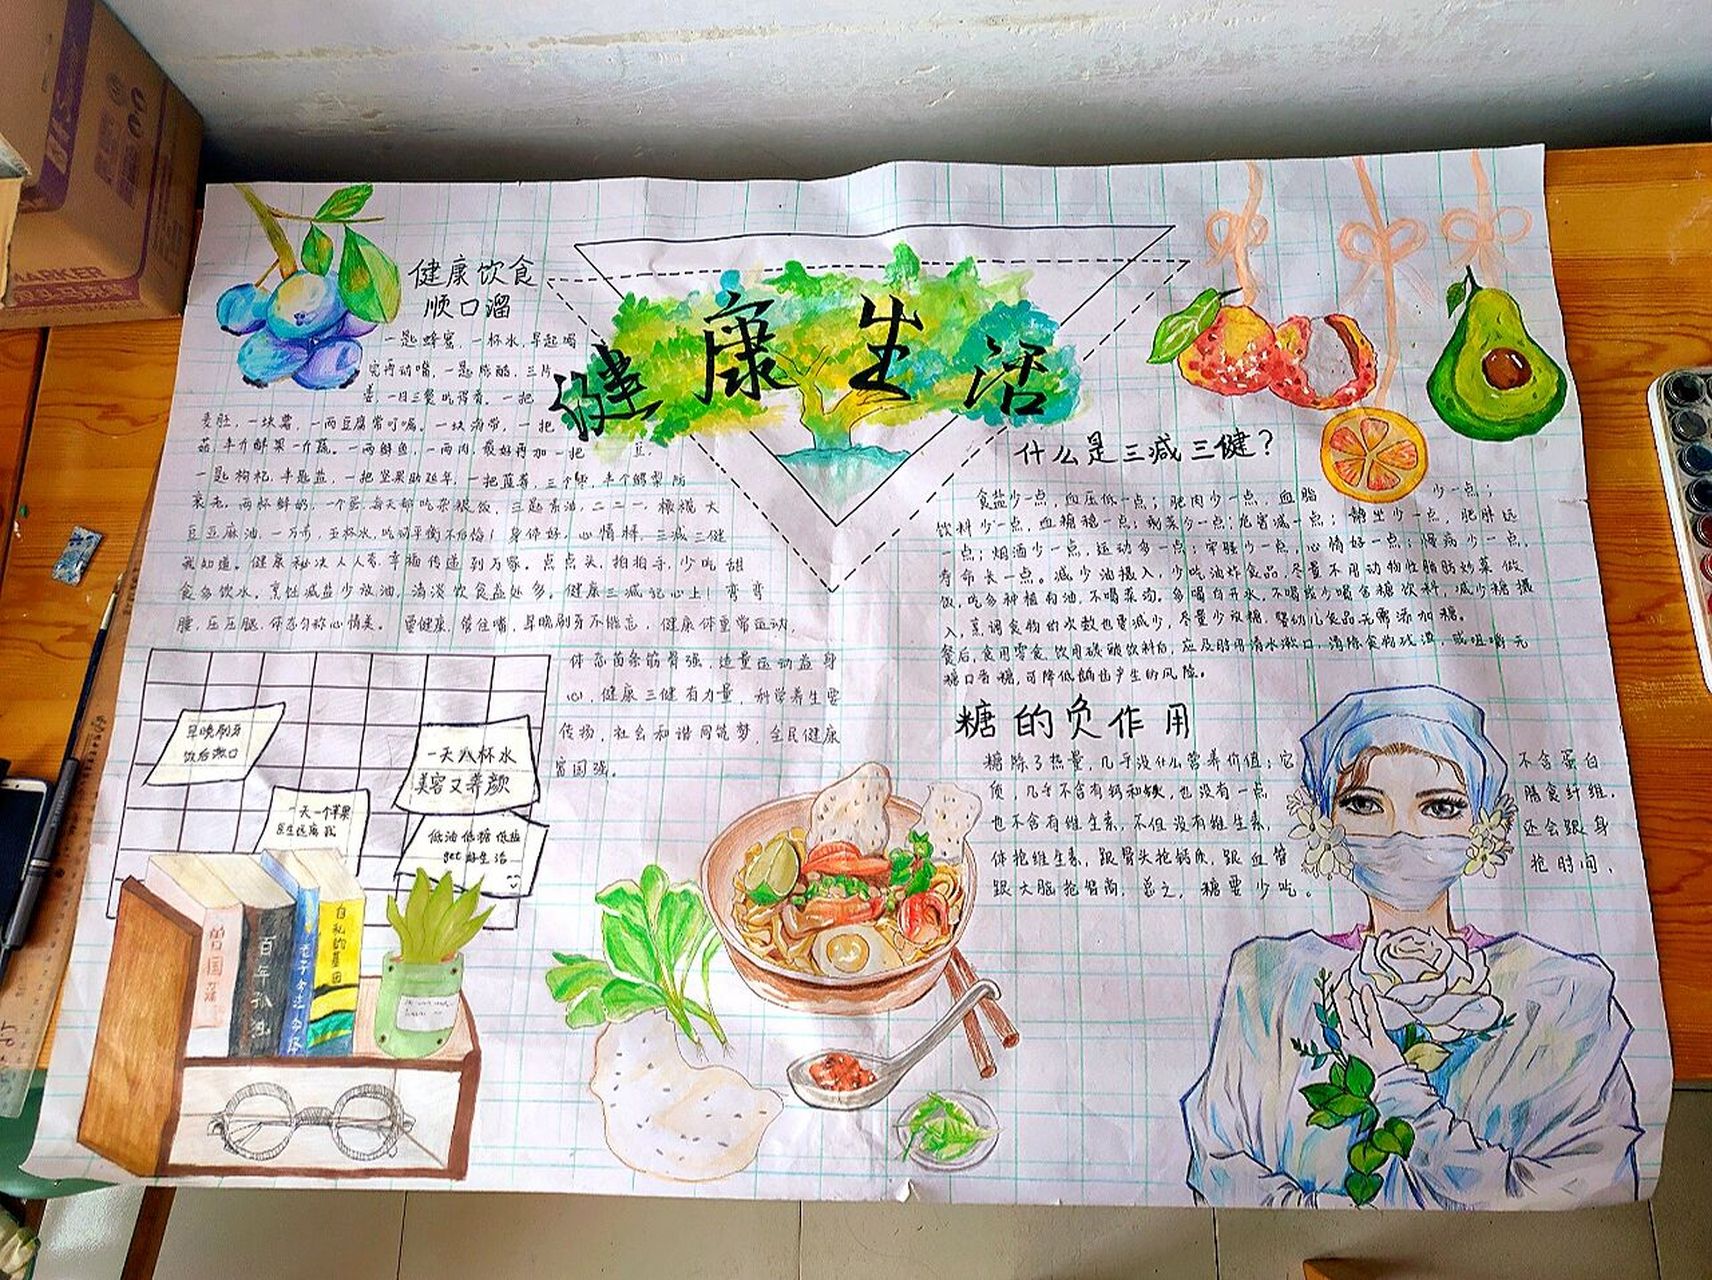 健康生活
健康饮食
顺口溜
一匙蜂蜜,一杯水,早起喝
完再动嘴,一匙陈醋,三片
姜,一日三餐吃得香,一把
麦胚,一块薯,一两豆腐常叮嘱。一块海带,一把
菇,半斤鲜果一斤蔬。一两鲜鱼,一两肉,最好再加一把豆,
一匙枸杞,半匙盐,一把坚果助延年,一把蓝莓,三个枣,半个鳄梨防
衰老。两杯鲜奶,一个蛋,每天都吃杂粮饭,三匙素油,二二一,橄榄大
豆亚麻油,一万步,五杯水,吃动平衡不后悔!身体好,心情棒,三减三健
我知道。健康秘决人人有,幸福传递到万家。点点头,拍拍手,少吃甜
食多饮水。烹饪减盐少放油,清淡饮食益处多。健康三减记心上!弯弯
腰,压压腿,体态匀称心情美。要健康,管住嘴,早晚刷牙不能忘,健康体重常运动,
体态苗条筋骨强,适量运动益身
心,健康三健有力量,科学养生要
传扬,社会和谐同筑梦,全民健康
富国强。
早晚刷牙
饭后漱口
一天八杯水
美容又养颜
一天一个苹果
医生远离我
低油低糖低盐
get好生活
百年孤独
自私的基因
什么是三减三健?
食盐少一点,血压低一点;肥肉少一点,血脂少一点;
饮料少一点,血糖稳一点;剩菜少一点,危害减一点;静坐少一点,肥胖远
一点;烟酒少一点,运动多一点;牢骚少一点,心情好一点;慢病少一点,
寿命长一点。减少油摄入,少吃油炸食品,尽量不用动物性脂肪炒菜做
饭,吃多种植物油,不喝菜汤。多喝白开水,不喝或少喝含糖饮料,减少糖摄
入,烹调食物的次数也要减少,尽量少放糖,婴幼儿食品无需添加糖。
餐后,食用零食、饮用碳酸饮料后,应及时用清水漱口,清除食物残渣,或咀嚼无
糖口香糖,可降低龋齿产生的风险。
糖的负作用
糖除了热量,几乎没什么营养价值;它不含蛋白
质,几乎不含有钙和铁,也没有一点膳食纤维,
也不含有维生素,不但没有维生素,还会跟身
体抢维生素,跟骨头抢钙质,跟血管抢时间,
跟大脑抢智商,总之,糖要少吃。
MARKER